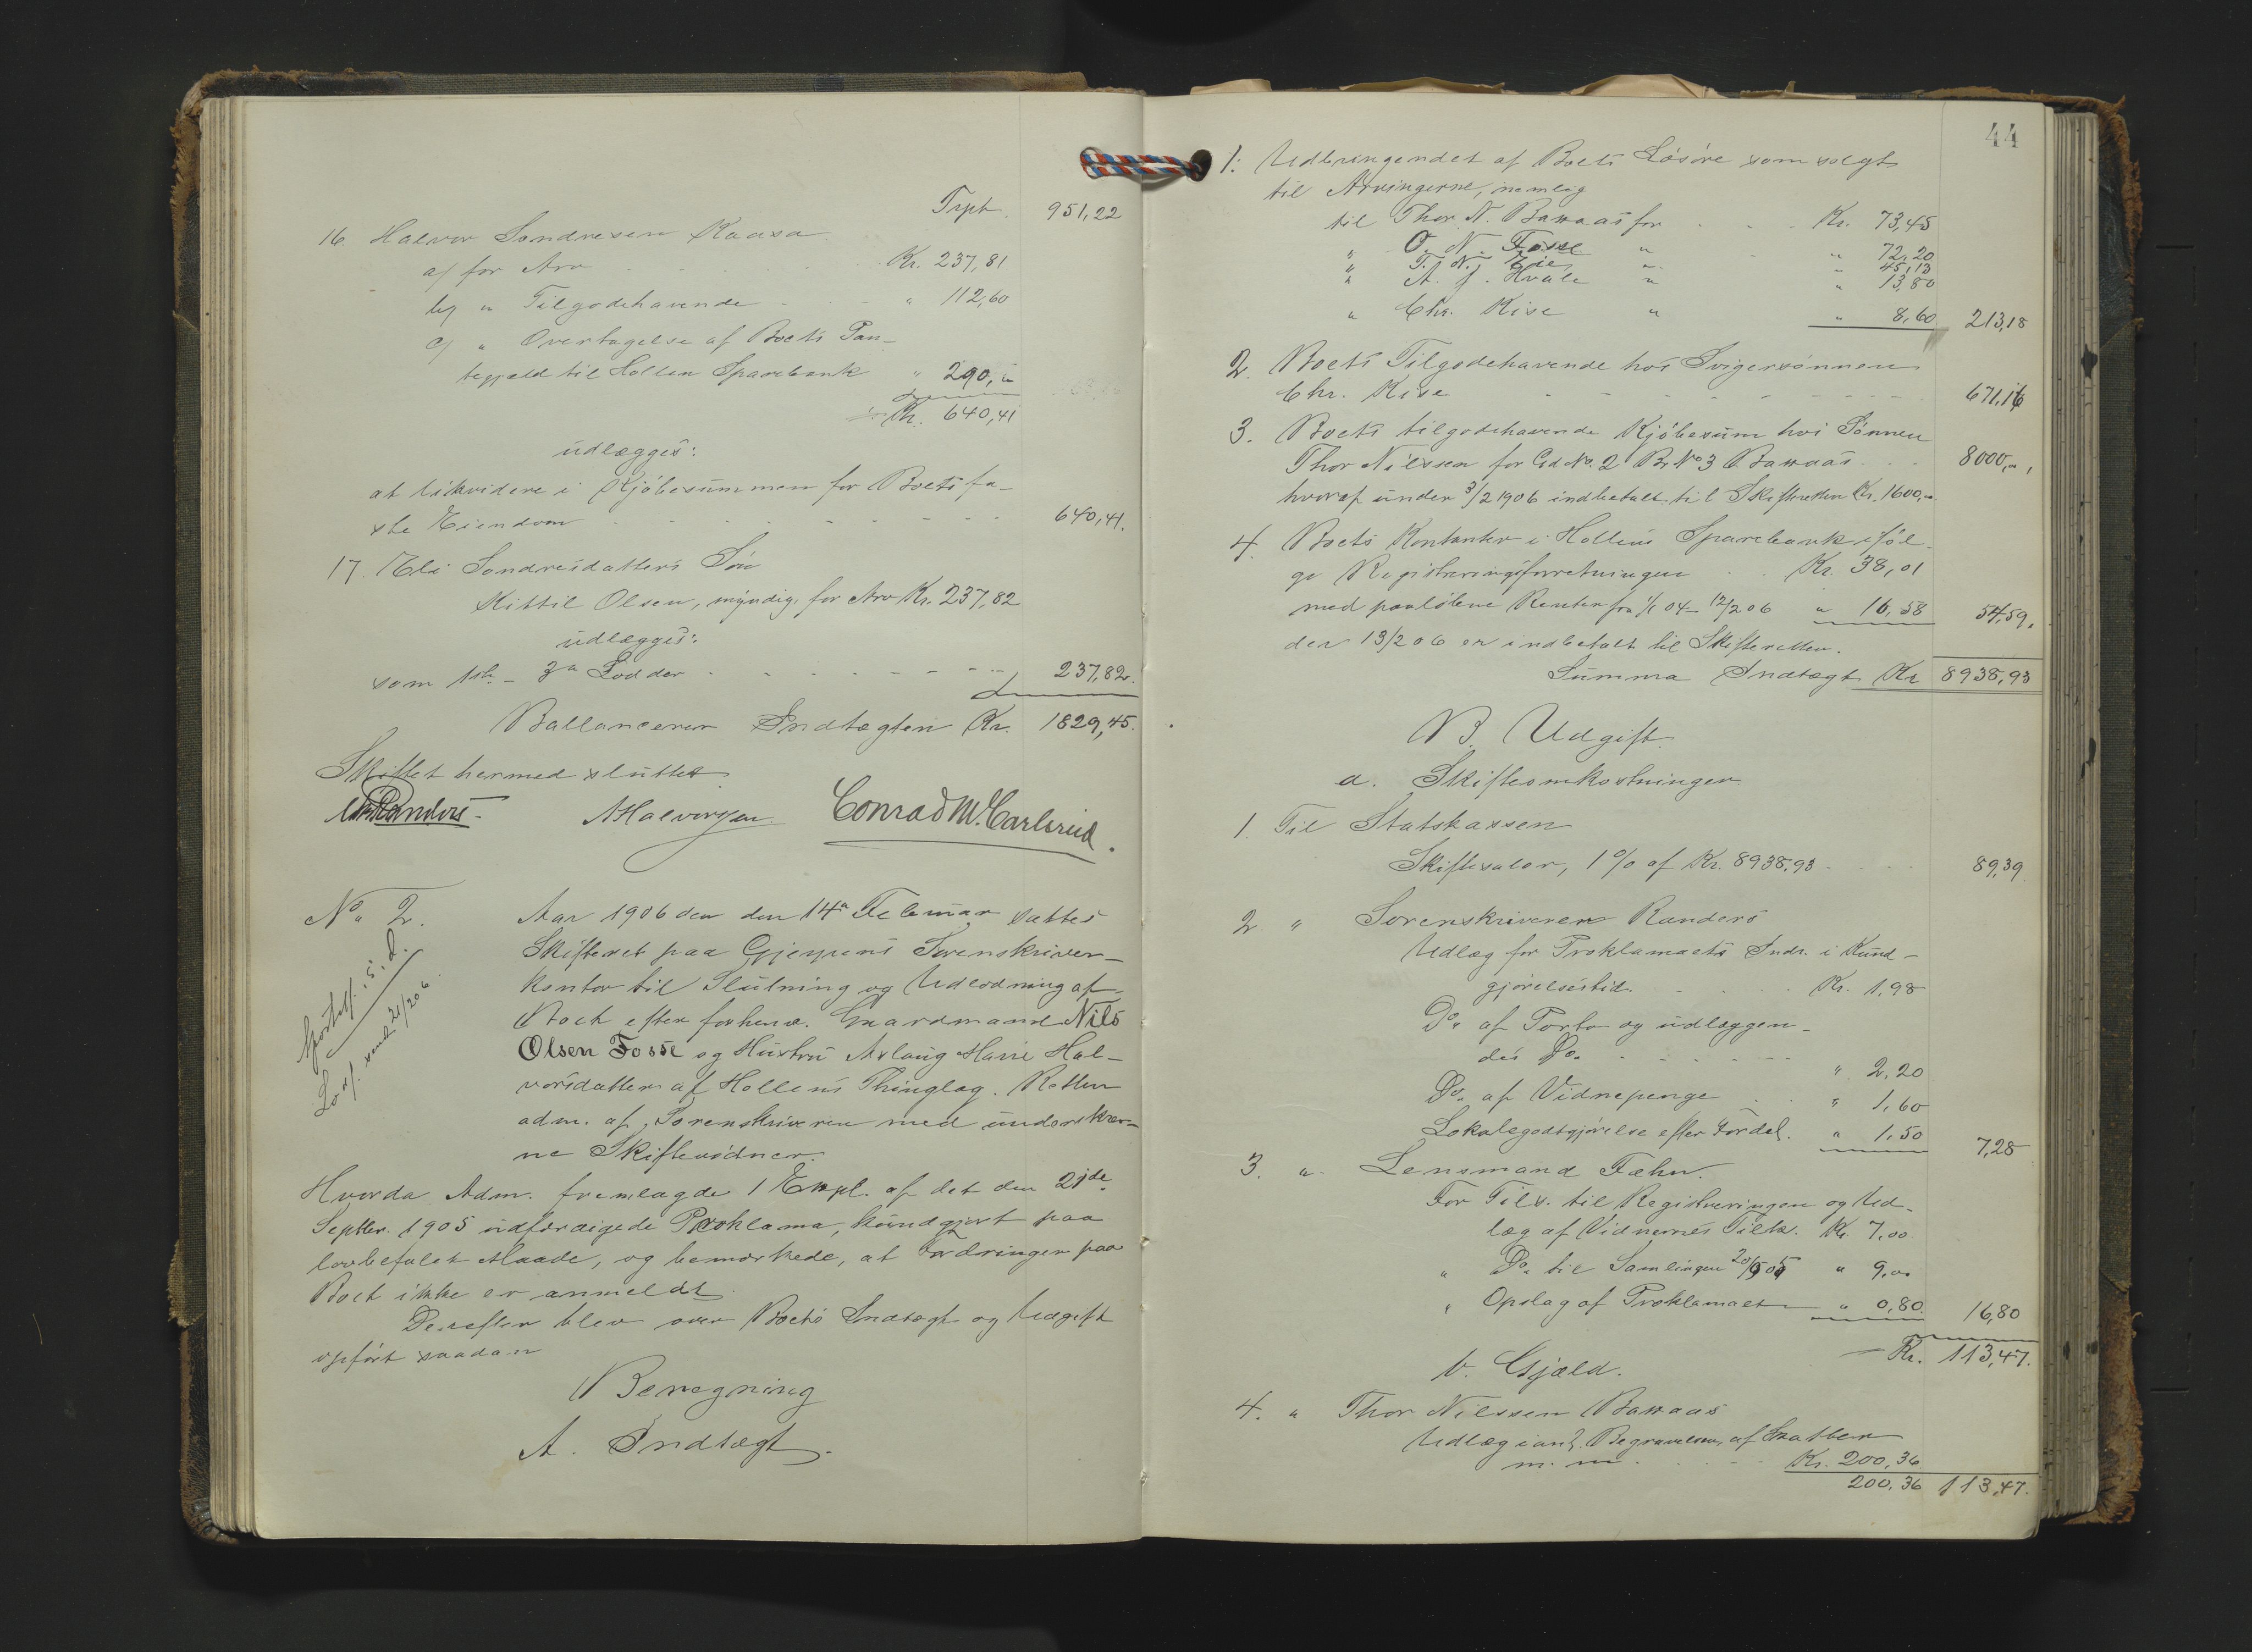 Trpt. 951,22
16. Halvor Sondresen Kaasa
a/ for Arv Kr. 237,81
b/ " Tilgodehavende " 112,60
c/ " Overtagelse af Boets Pan-
tegjæld til Hollen Sparebank " 290,"
Kr. 640,41
udlægges:
at likvidere i Kjöbesummen for Boets fa-
ste Eiendom 640,41.
17. Eli Sondresdatters Sön
Kittil Olsen, myndig, for Arv Kr. 237,82
udlægges:
som 1ste - 3a Lodder 237,82.
Ballancerer Indtægten Kr. 1829,45.
Skiftet hermed sluttet
Randers. NHalvorsen. Conrad M. Carlsrud.
No. 2.
Aar 1906 den den 14" Februar sattes
Skifteret paa Gjerpens Sorenskriver-
kontor til Slutning og Udlodning af
Boet efter forhenv. Gaardmand Nils
Olsen Fosse og Hustru Aslaug Marie Hal-
vorsdatter af Hollens Thinglag. Retten
adm. af Sorenskriveren med underskrev-
ne Skiftevidner.
Hvorda Adm. fremlagde 1 Expl. af det den 21de
Septbr. 1905 udfærdigede Proklama, kundgjort paa
lovbefalet Maade, og bemærkede, at Fordringer paa
Boet ikke er anmeldt.
Derefter blev over Boets Indtægt og Udgift
opfört saadan
Beregning
A. Indtægt.
44
1. Udbringendet af Boets Lösöre som solgt
til Arvingerne, nemlig
til Thor N. Baasaas for Kr. 73,45
" O. N. Fosse " " 72,20
" T. N. Eie " " 45,13
" A. J. Hvale " " 13,80
" Chr. Kise " " 8,60 213,18
2. Boets Tilgodehavende hos Svigersönnen
Chr. Kise 671,16
3. Boets tilgodehavende Kjöbesum hos Sönnen
Thor Nilssen for Gd No. 2 Br No 3 Baasaas 8000,",
hvoraf under 3/2 1906 indbetalt til Skifteretten Kr. 1600,"
4. Boets Kontanter i Hollens Sparebank iföl-
ge Registreringsforretningen Kr. 38,01
med paalöbne Renter fra 1/1 04 - 12/2 06 " 16,58 54,59.
den 13/2 06 er indbetalt til Skifteretten.
Summa Indtægt Kr 8938,93
B. Udgift.
a. Skifteomkostninger
1. Til Statskassen
Skiftesalær, 1% af Kr. 8938,93 89,39
2. " Sorenskriveren Randers
Udlæg for Proklamaets Indr. i Kund-
gjörelsestid. Kr. 1,98
Do. af Porto og udlæggen-
des Do. " 2,20
Do. af Vidnepenge " 1,60
Lokalegodtgjörelse efter Fordel. " 1,50 7,28
3. " Lensmand Fæhn.
For Tils. til Registreringen og Ud-
læg af Vidnernes Tilk. Kr. 7,00
" Do. til Samlingen 20/9 05 " 9,00
" Opslag af Proklamaet " 0,80 16,80
Kr. 113,47.
b. Gjæld.
4. " Thor Nilssen Baasaas
Udlæg i anl. Begravelsen, af Skatter
m. m. Kr. 200,36
200,36 113,47.